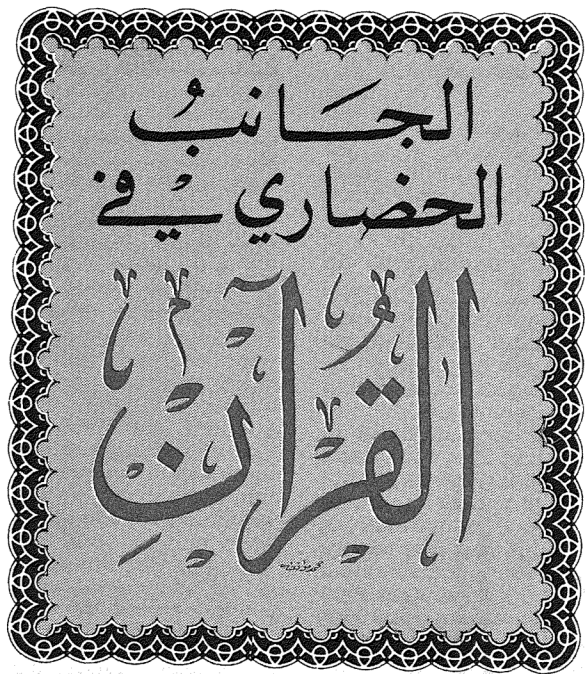 الجانبُ
الحضاري في
القُرْآنِ